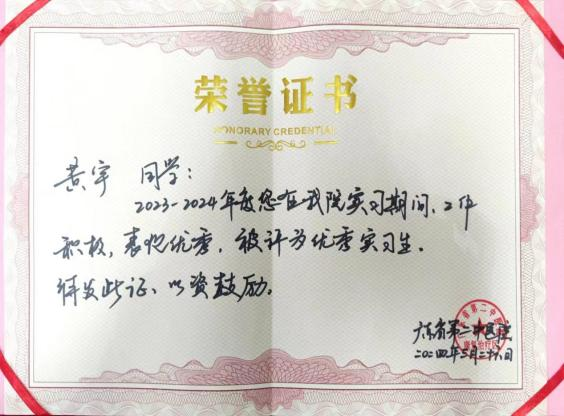 荣誉证书
HONORARY CREDENTIAL
黄宇 同学：
2023-2024年度您在我院实习期间，工作
积极，表现优秀，被评为优秀实习生。
特发此证，以资鼓励。
广东省第二中医院
二〇二四年三月二十八日